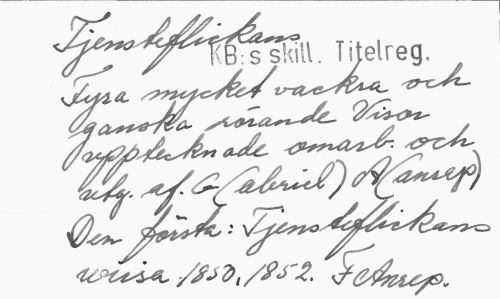 Tjensteflickans
KB:s skill. Titelreg.
Fyra mycket vackra och
ganska rörande Visor
upptecknade omarb. och
utg. af. G(abriel) A(anrep)
Den första: Tjensteflickans
wisa. 1850, 1852. F Anrep.